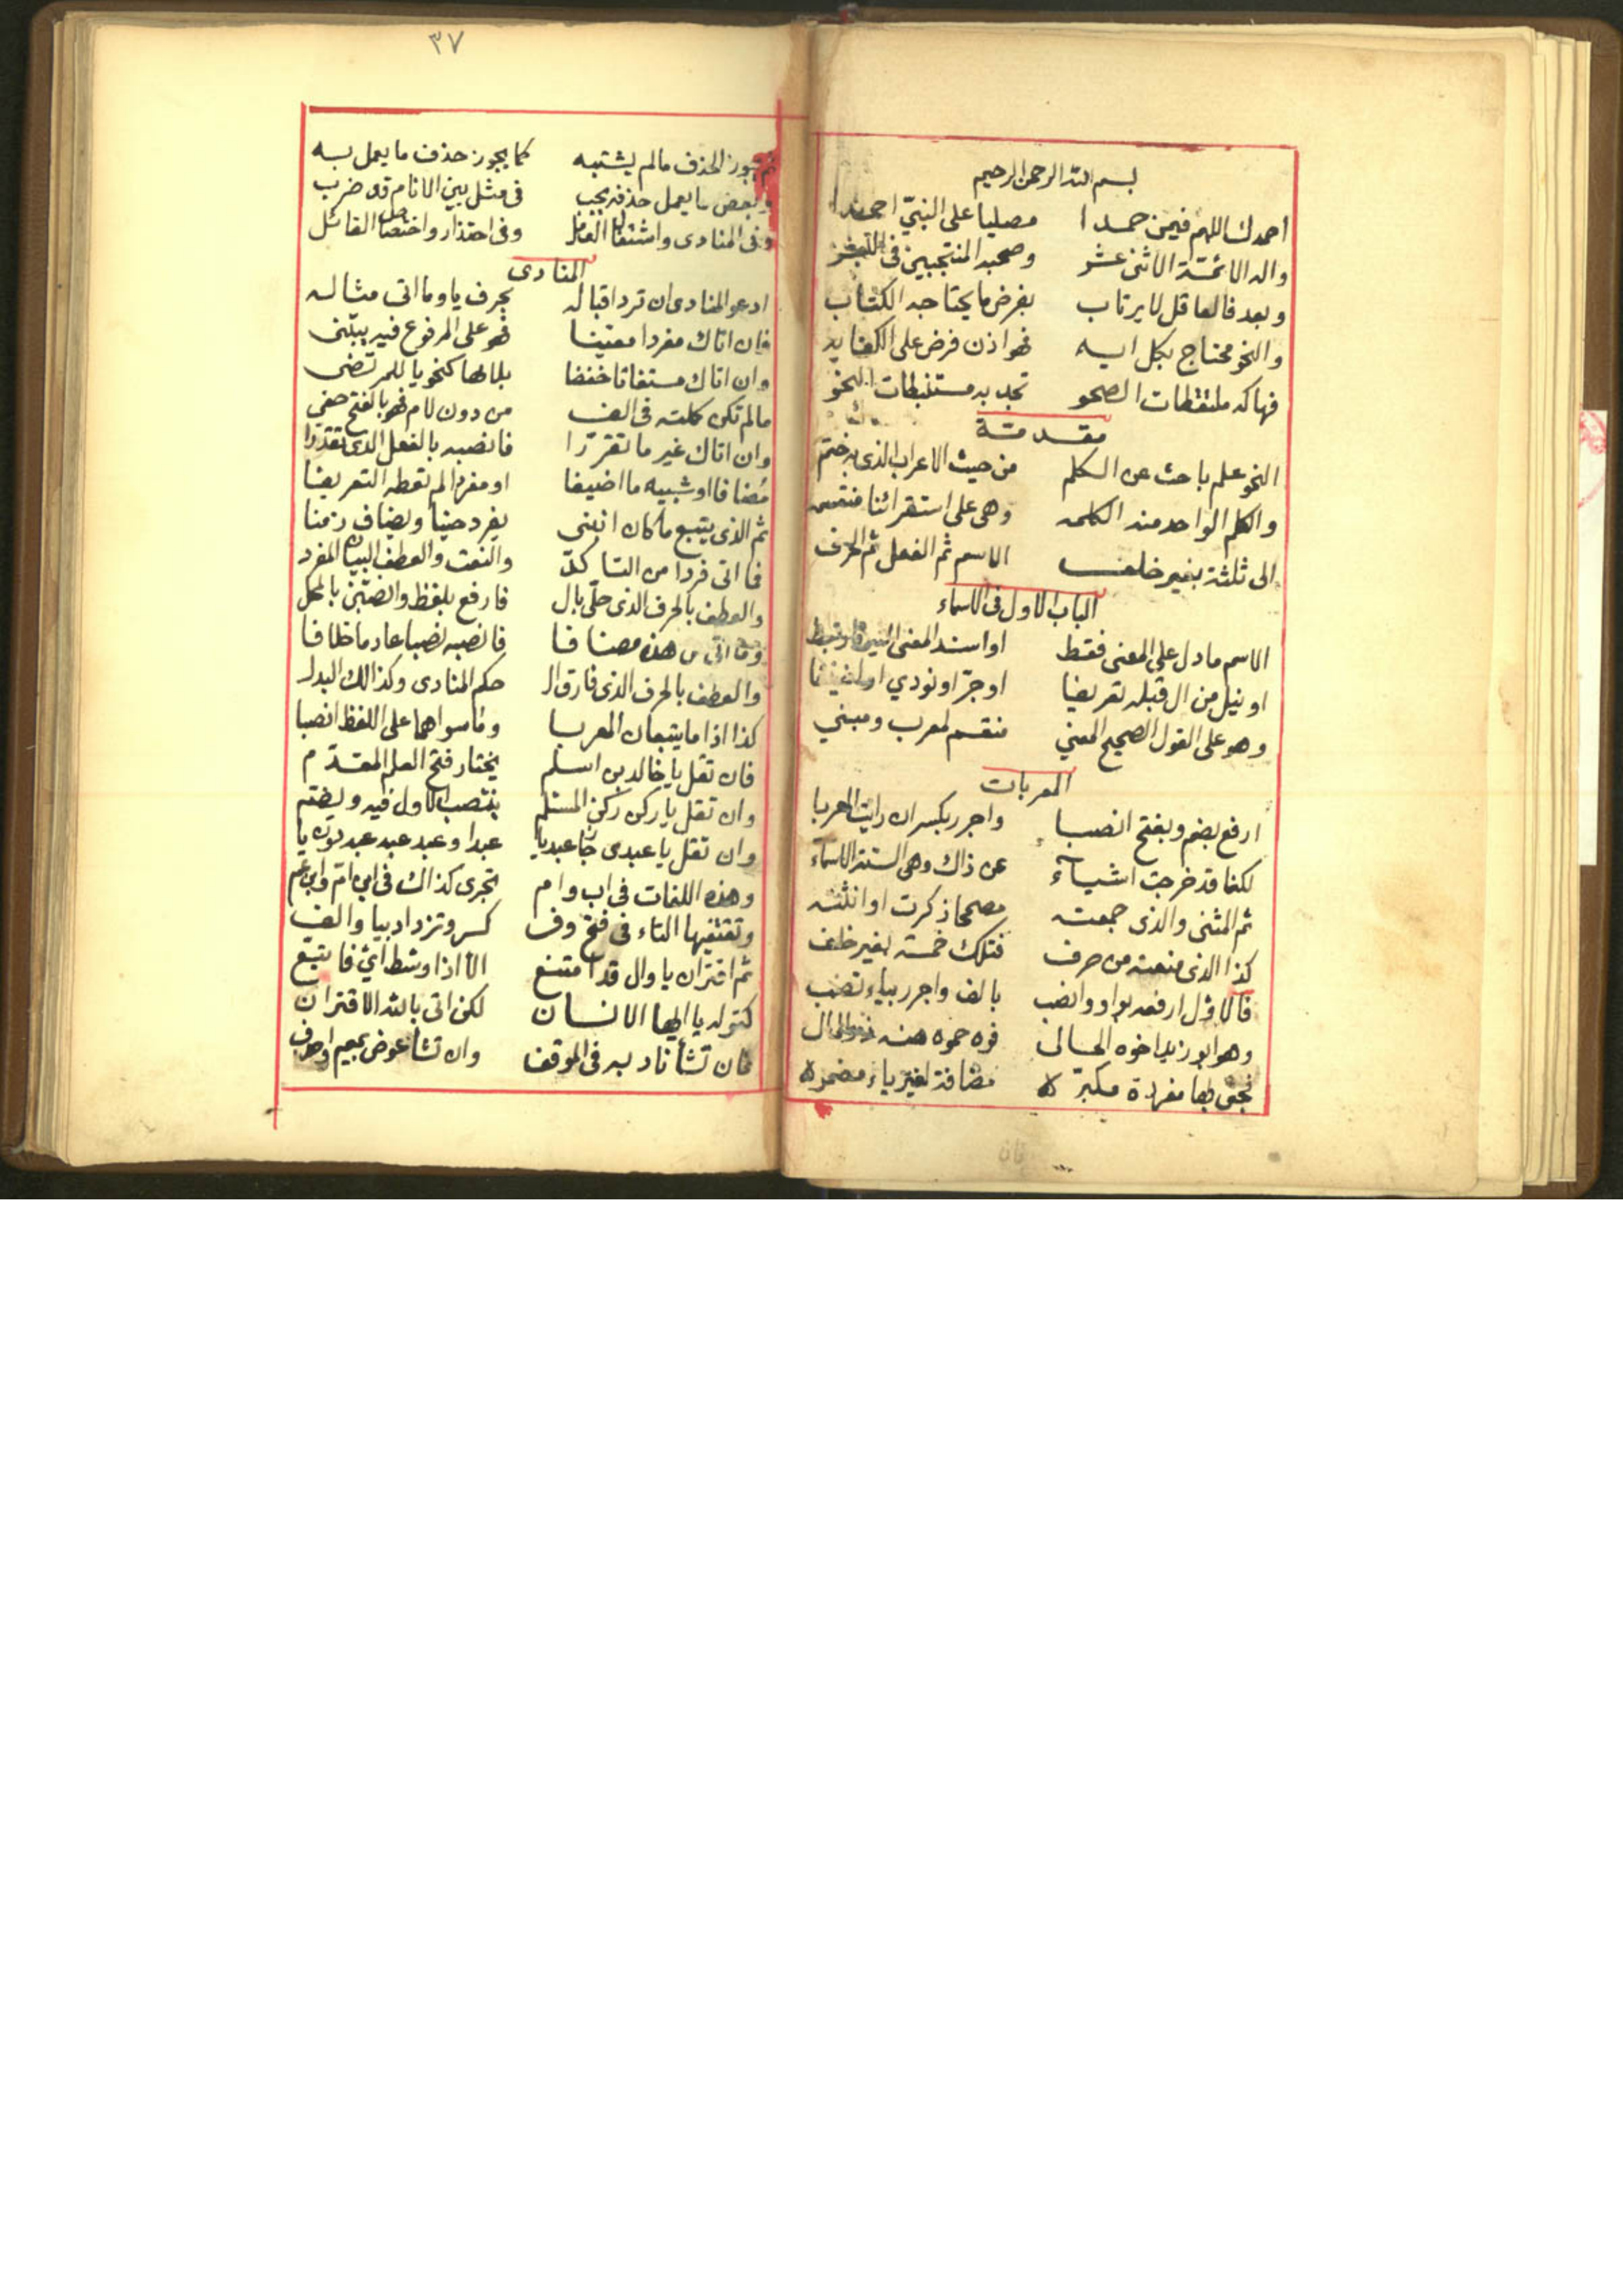 بسم الله الرحمن الرحيم
احمدك اللهم فيمن حمدا مصليا على النبيّ احمدا
واله الائمّة الاثنى عشر وصحبه المنتجبين فى
وبعد فالعاقل لا يرتاب بفرض ما يحتاجه الكتاب
والنحو محتاج بكل ايه فهو اذن فرض على الكفايه
فهاكه ملتقطات الصحو تجد به مستنبطات النحو
مقدمة
النحو علم باحث عن الكلم من حيث الاعراب الذى به ختم
والكلم الواحد منه الكلمه وهى على استقرائنا منقسمه
الى ثلثة بغير خلف الاسم ثم الفعل ثم الحرف
الباب الاول فى الاسماء
الاسم ما دل على المعنى فقط او اسند المعنى اليه
او نيل من ال قبله تعريفا او جرّ او نودي او
وهو على القول الصحيح المغني منقسم لمعرب ومبني
المعربات
ارفع بضم وبفتح انصبا واجرر بكسر ان رايت المعربا
لكنما قد خرجت اشياء عن ذاك وهى الستة الاسماء
ثم المثنى والذى جمعته مصححا ذكرت او انثته
كذا الذى منعته من صرف فتلك خمسة بغير خلف
فالاوّل ارفعه بواو وانصب بالف واجرر بياء تصب
وهو ابو زيد اخوه الحالى فوه حموه هنه ذو المال
فجئ بها مفردة مكبرّه مضافة لغير ياء مضمره
٣٧
ثم يجوز الحذف ما لم يشتبه كما يجوز حذف ما يعمل به
وبعض ما يعمل حذفه يجب فى مثل بين الانام قد ضرب
وفى المنادى واشتغال العامل وفى احتذار واختصاص القائل
المنادى
ادعو المنادى ان ترد اقباله بحرف يا وما اتى مثاله
فان اتاك مفردا معينا فهو على المرفوع فيه يبتنى
وان اتاك مستغاثا خفضا بلامها كنحو يا للمرتضى
ما لم تكن كملته فى الف من دون لام فهو بالفتح حفي
وان اتاك غير ما تقرّرا فانصبه بالفعل الذى تقدرا
مضافا او شبيه ما اضيفا او مفردا لم تعطه التعريفا
ثم الذى يتبع ما كان ابتنى يفرد حينا ويضاف زمنا
فما اتى فردا من التاكدّ والنعت والعطف البيان المفرد
والعطف بالحرف الذى حلّى بال فارفع بلفظ وانصبن بالمحل
وما اتى من هذه مضافا فانصبه نصبا عادما خلافا
والعطف بالحرف الذى فارق ال حكم المنادى وكذالك البدل
كذا اذا ما يتبعان المعربا وما سواهما على اللفظ انصبا
فان تقل يا خالد بن اسلم يختار فتح العلم المقدّم
وان تقل يا ركن ركن المسلم ينتصب الاول فيه ويضم
وان تقل يا عبدى جا عبديا عبدا وعبد عبد عبد دون يا
وهذه اللغات فى اب وام تجرى كذاك فى ابن امّ وابن عم
وتقتفيها التاء فى فتح وفى كسر وتزداد بيا والف
ثم اقتران يا وال قد امتنع الا اذا وسّط ايّ فاتبع
كقوله يا ايها الانسان لكن اتى بالله الاقتران
فان تشأ ناد به فى الموقف وان تشأ عوض بميم احرف